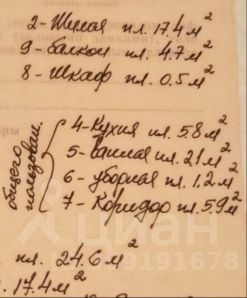 2-Жилая пл. 17.4 м²
9-балкон пл. 4.7 м²
8-Шкаф пл. 0.5 м²
общего пользован.
4-Кухня пл. 5.8 м²
5-ванная пл. 2.1 м²
6-уборная пл. 1.2 м²
7-Коридор пл. 5.9 м²
циан
пл. 24.6 м²
17.4 м²